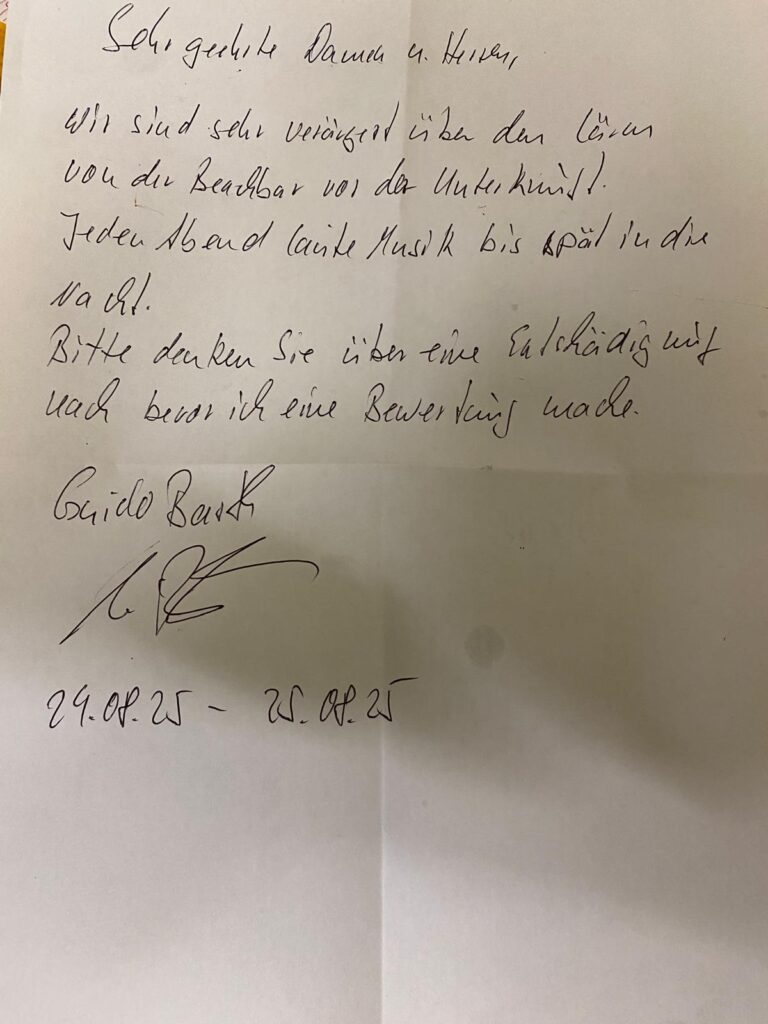 Sehr geehrte Damen u. Herren,
Wir sind sehr verärgert über den Lärm
von der Beachbar vor der Unterkunft.
Jeden Abend laute Musik bis spät in die
Nacht.
Bitte denken Sie über eine Entschädigung
nach bevor ich eine Bewertung mache.
Guido Barth
24.08.25 - 25.08.25